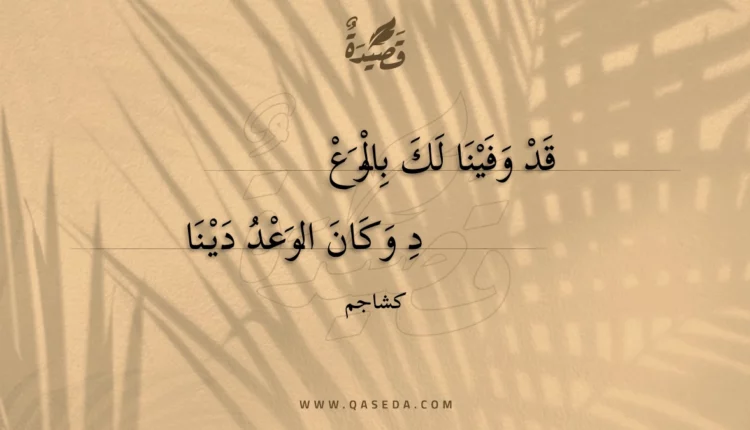 قَصِيْدَةٌ
قَدْ وَفَيْنَا لَكَ بِالْوَعْ
دِ وَكَانَ الوَعْدُ دَيْنَا
كشاجم
WWW.QASEDA.COM